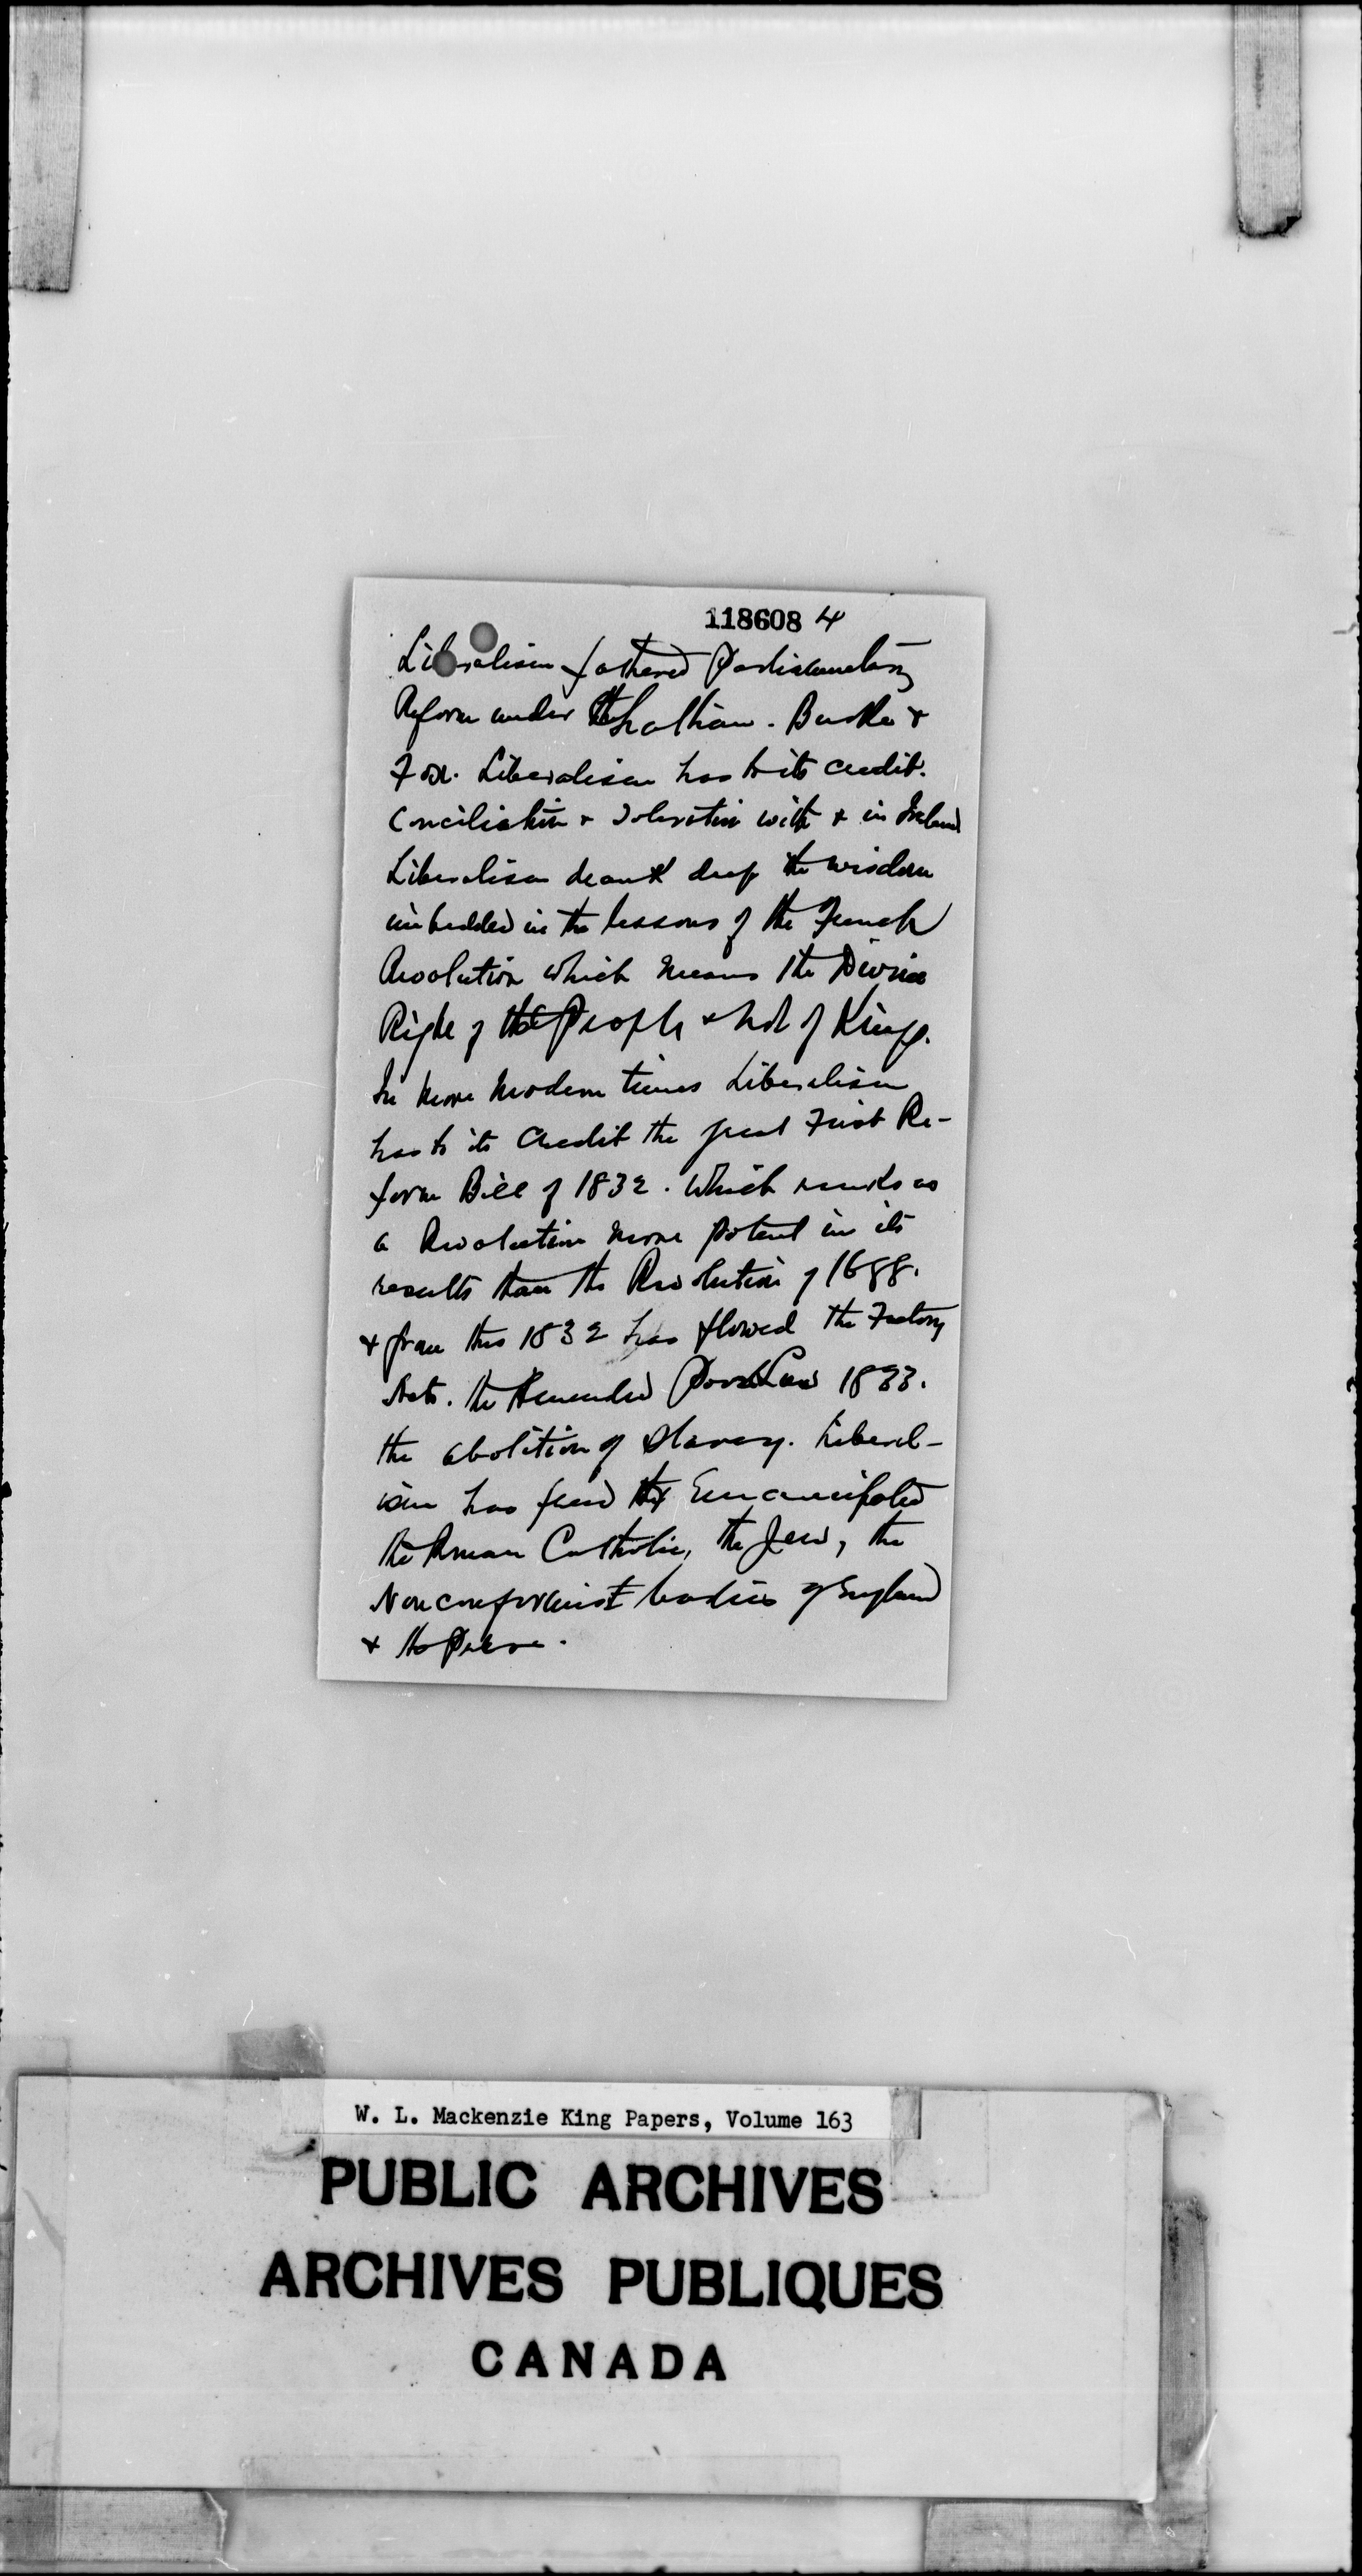 118608 4
Liberalism fathered Parliamentary
Reform under Chatham. Burke &
Fox. Liberalism has to its credit.
Conciliation & Toleration with & in Ireland
Liberalism drank deep the wisdom
imbedded in the lessons of the French
Revolution which means the Divine
Right of the People & not of Kings.
In more modern times Liberalism
has to its credit the great First Re-
form Bill of 1832. Which ranks as
a Revolution more potent in its
results than the Revolution of 1688.
& from this 1832 has flowed the Factory
Acts. the Amended Poor Law 1833.
the abolition of Slavery. Liberal-
ism has freed & Emancipated
the Roman Catholic, the Jew, the
Nonconformist bodies of England
& the
W. L. Mackenzie King Papers, Volume 163
PUBLIC ARCHIVES
ARCHIVES PUBLIQUES
CANADA